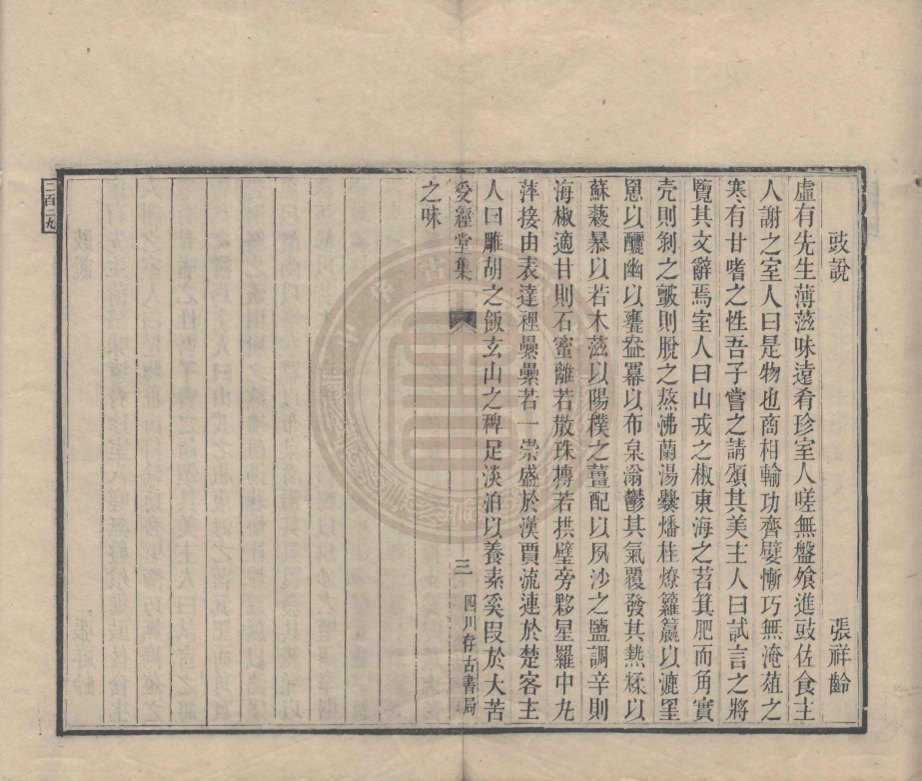 豉說　張祥齡
虛有先生薄滋味遠肴珍室人嗟無盤飧進豉佐食主
人謝之室人曰是物也商相輸功齊嬖慚巧無淹葅之
寒有甘嗜之性吾子嘗之請頌其美主人曰試言之將
覽其文辭焉室人曰山戎之椒東海之苕箕肥而角實
壳則剝之皷則脫之熬沸蘭湯爨燔桂燎籮籯以漉罣
罳以釃幽以甕盎羃以布帛滃鬱其氣覆發其熱糅以
蘇蔱暴以若木滋以陽樸之薑配以夙沙之鹽調辛則
海椒適甘則石蜜離若散珠摶若拱璧旁夥星羅中丸
萍接由表達裡纍纍若一崇盛於漢賈流連於楚客主
人曰雕胡之飯玄山之稗足淡泊以養素奚叚於大苦
受經堂集　三　四川存古書局
之味
三百二九